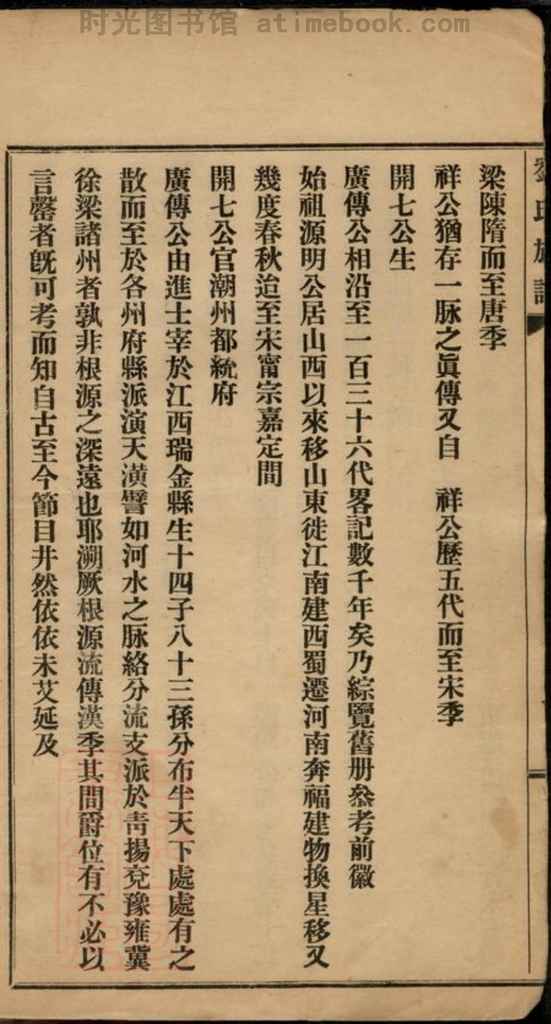 时光图书馆 atimebook.com
劉氏族譜
梁陳隋而至唐季
祥公猶存一脉之眞傳又自　祥公歷五代而至宋季
開七公生
廣傳公相沿至一百三十六代畧記數千年矣乃綜覽舊册叅考前徽
始祖源明公居山西以來移山東徙江南建西蜀遷河南奔福建物換星移又
幾度春秋迨至宋甯宗嘉定間
開七公官潮州都統府
廣傳公由進士宰於江西瑞金縣生十四子八十三孫分布半天下處處有之
散而至於各州府縣派演天潢譬如河水之脉絡分流支派於靑揚兗豫雍冀
徐梁諸州者孰非根源之深遠也耶溯厥根源流傳漢季其間爵位有不必以
言罄者旣可考而知自古至今節目井然依依未艾延及